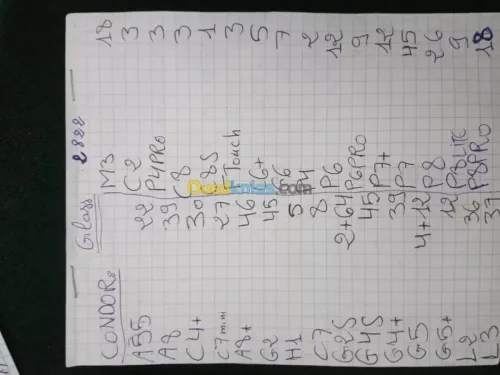 Glass 2888
CONDOR: M3 18
A55 22 C2 3
A8 39 P4PRO 3
C4+ 30 C8 3
C7mini 27 8S 1
A8+ 46 Touch 3
G2 45 6+ 5
H1 5 6 7
P4 2
C7 8 P6 12
G2S 2+64 P6PRO 9
G4S 45 P7+ 12
G4+ 39 P7 45
G5 4+12 P8 26
G5+ 12 9
L2 36 P8PRO 18
L3 37